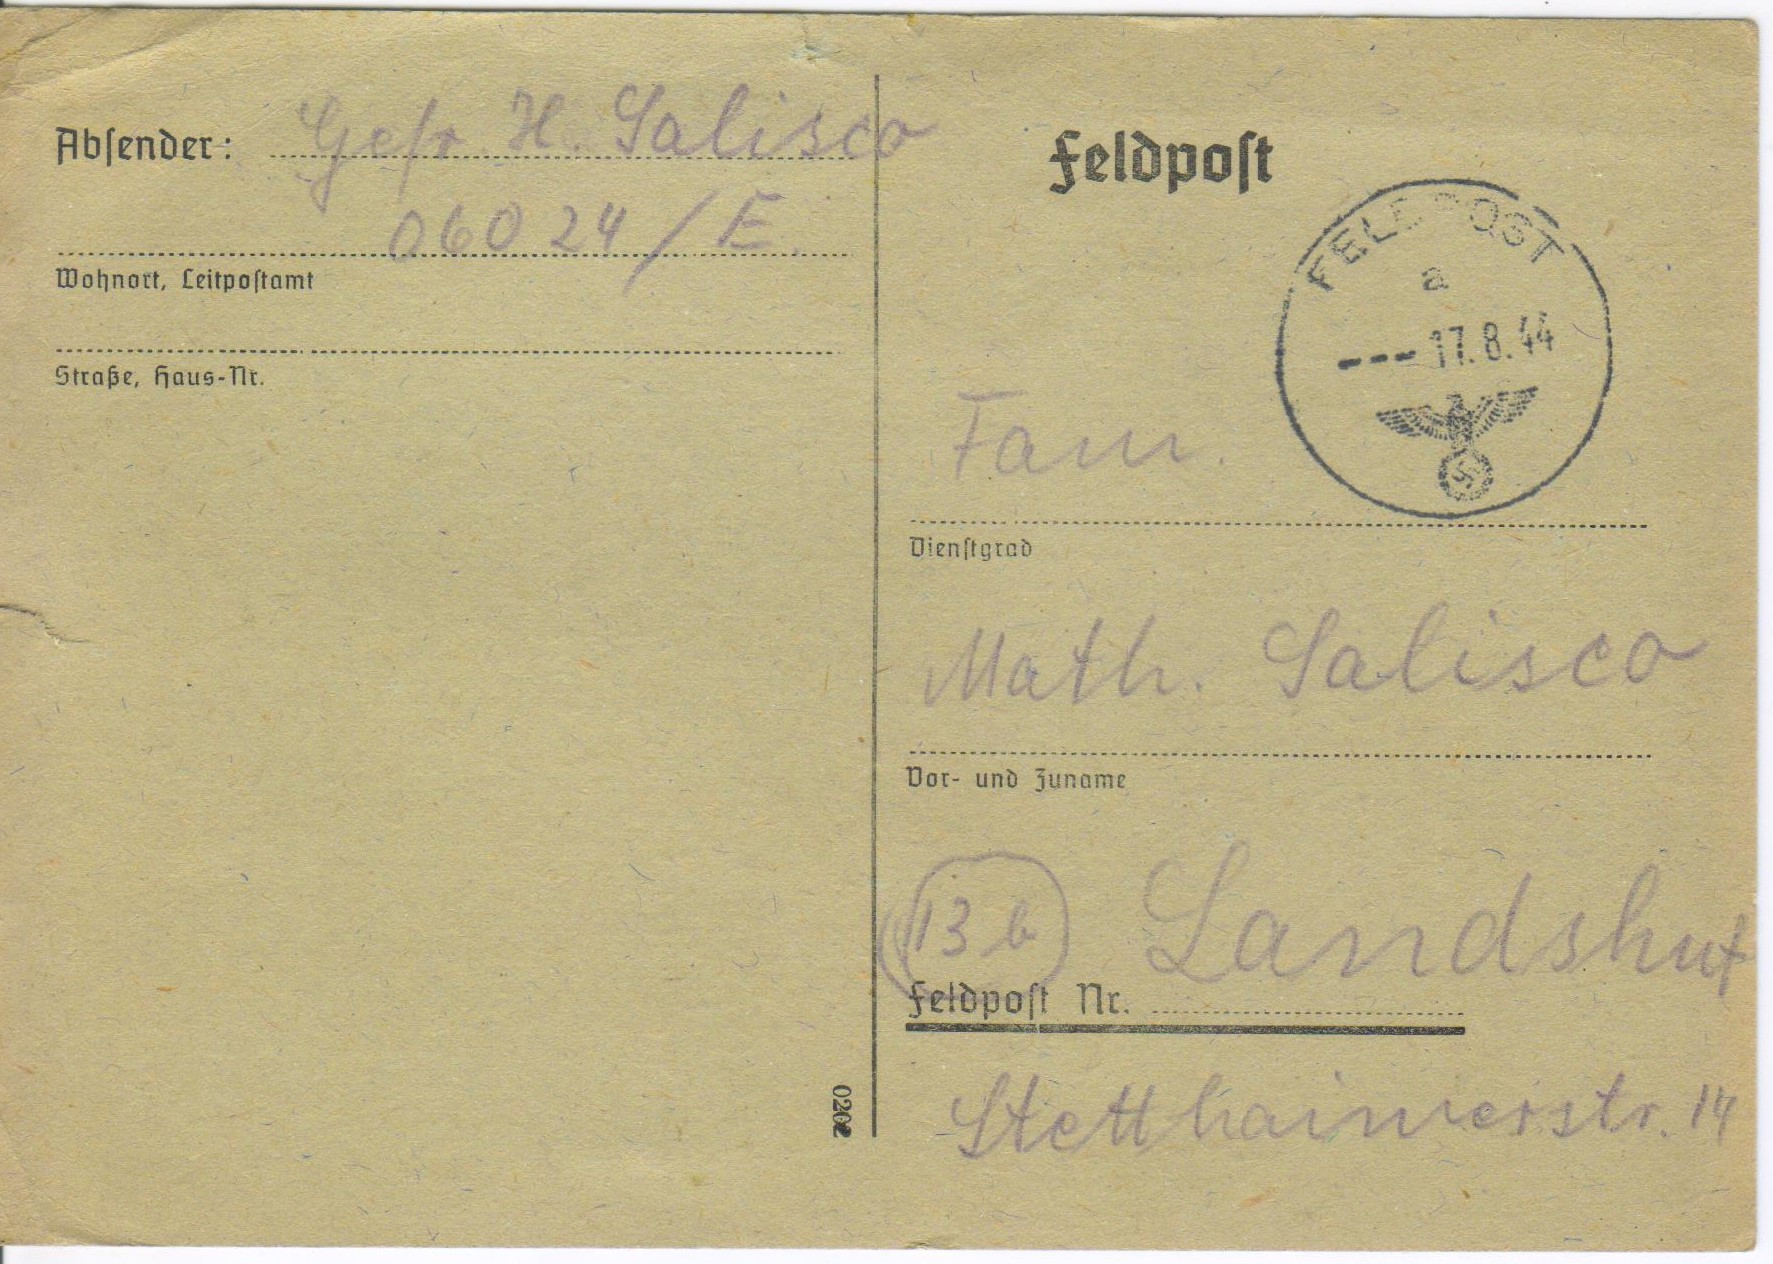 Absender: Gefr. H. Salisco
06024/E.
Wohnort, Leitpostamt
Straße, Haus-Nr.
Feldpost
FELDPOST
a
--- 17.8.44
Fam.
Dienstgrad
Math. Salisco
Vor- und Zuname
13b Landshut
Feldpost Nr.
Stetthaimerstr. 14
0202